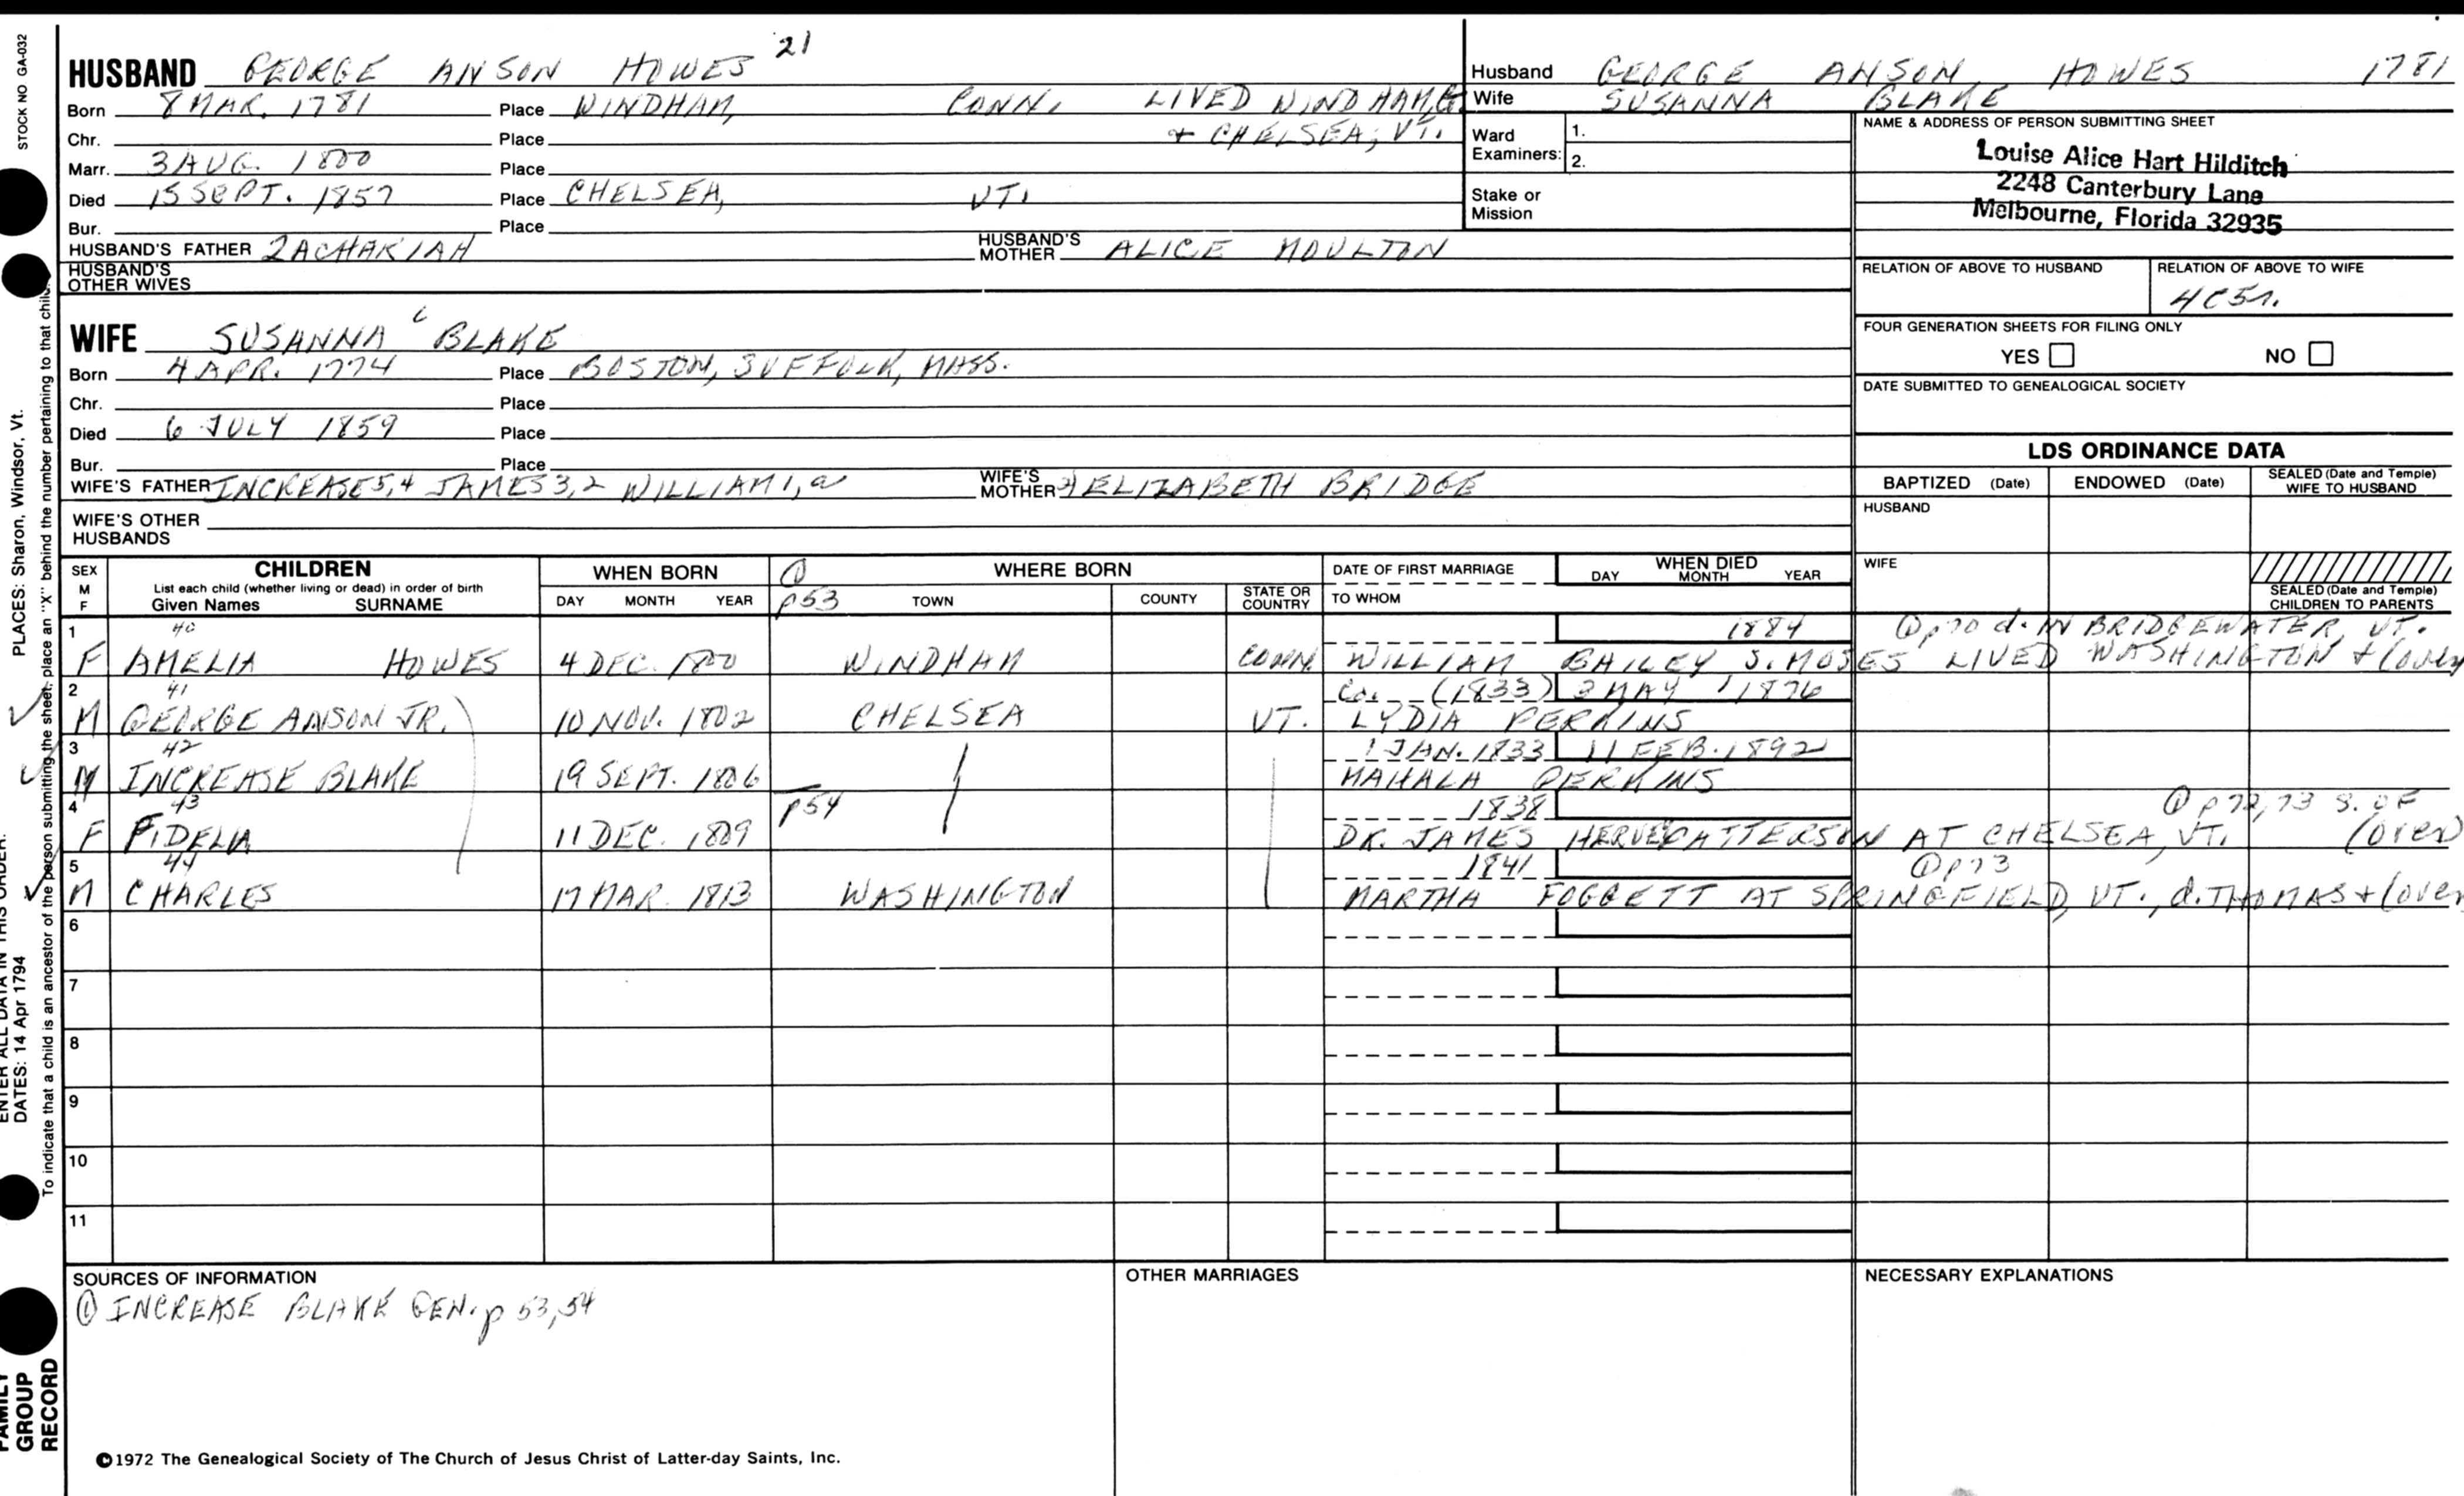 STOCK NO GA-032
HUSBAND GEORGE ANSON HOWES 21
Born 8 MAR. 1781 Place WINDHAM, CONN. LIVED WINDHAM, Ct
Chr. Place + CHELSEA, VT.
Marr. 3 AUG. 1800 Place
Died 15 SEPT. 1857 Place CHELSEA, VT.
Bur. Place
HUSBAND'S FATHER ZACHARIAH HUSBAND'S MOTHER ALICE MOULTON
HUSBAND'S OTHER WIVES
Husband GEORGE ANSON HOWES 1781
Wife SUSANNA BLAKE
Ward Examiners: 1.
2.
Stake or Mission
NAME & ADDRESS OF PERSON SUBMITTING SHEET
Louise Alice Hart Hilditch
2248 Canterbury Lane
Melbourne, Florida 32935
RELATION OF ABOVE TO HUSBAND RELATION OF ABOVE TO WIFE
4C5r.
FOUR GENERATION SHEETS FOR FILING ONLY
YES NO
DATE SUBMITTED TO GENEALOGICAL SOCIETY
WIFE SUSANNA 6 BLAKE
Born 4 APR. 1774 Place BOSTON, SUFFOLK, MASS.
Chr. Place
Died 6 JULY 1859 Place
Bur. Place
WIFE'S FATHER INCREASE 5,4 JAMES 3,2 WILLIAM 1, a WIFE'S MOTHER ELIZABETH BRIDGE
WIFE'S OTHER HUSBANDS
LDS ORDINANCE DATA
BAPTIZED (Date) ENDOWED (Date) SEALED (Date and Temple) WIFE TO HUSBAND
HUSBAND
WIFE
SEALED (Date and Temple) CHILDREN TO PARENTS
SEX M F CHILDREN List each child (whether living or dead) in order of birth Given Names SURNAME
WHEN BORN DAY MONTH YEAR
① p53 WHERE BORN TOWN COUNTY STATE OR COUNTRY
DATE OF FIRST MARRIAGE TO WHOM
WHEN DIED DAY MONTH YEAR
1 40 1884 ① p70 d. IN BRIDGEWATER, VT.
F AMELIA HOWES 4 DEC. 1800 WINDHAM CONN. WILLIAM BAILEY S. MOSES LIVED WASHINGTON + (over
2 41 Ca. (1833) 3 MAY 1876
M GEORGE ANSON JR. 10 NOV. 1802 CHELSEA VT. LYDIA PERKINS
3 42 1 JAN. 1833 11 FEB. 1892
M INCREASE BLAKE 19 SEPT. 1806 MAHALA PERKINS
4 43 p54 1838 ① p72,73 S. OF
F FIDELIA 11 DEC. 1809 DR. JAMES HERVEY PATTERSON AT CHELSEA, VT. (over)
5 44 1841 ① p73
M CHARLES 17 MAR. 1813 WASHINGTON MARTHA FOGGETT AT SPRINGFIELD, VT., d. THOMAS + (over
6
7
8
9
10
11
SOURCES OF INFORMATION
① INCREASE BLAKE GEN. p 53,54
OTHER MARRIAGES
NECESSARY EXPLANATIONS
©1972 The Genealogical Society of The Church of Jesus Christ of Latter-day Saints, Inc.
PLACES: Sharon, Windsor, Vt.
ENTER ALL DATA IN THIS ORDER:
DATES: 14 Apr 1794
To indicate that a child is an ancestor of the person submitting the sheet, place an "X" behind the number pertaining to that child.
FAMILY GROUP RECORD